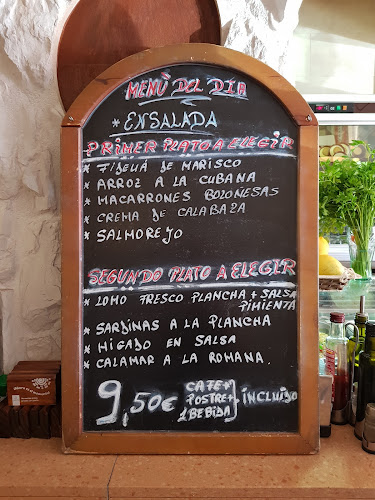 MENÚ DEL DIA
* ENSALADA
PRIMER PLATO A ELEGIR
* FIDEUÁ DE MARISCO
* ARROZ A LA CUBANA
* MACARRONES BOLOÑESAS
* CREMA DE CALABAZA
* SALMOREJO
SEGUNDO PLATO A ELEGIR
* LOMO FRESCO PLANCHA + SALSA
PIMIENTA
* SARDINAS A LA PLANCHA
* HIGADO EN SALSA
* CALAMAR A LA ROMANA.
9,50€ CAFE+
POSTRE+
1 BEBIDA} INCLUIDO